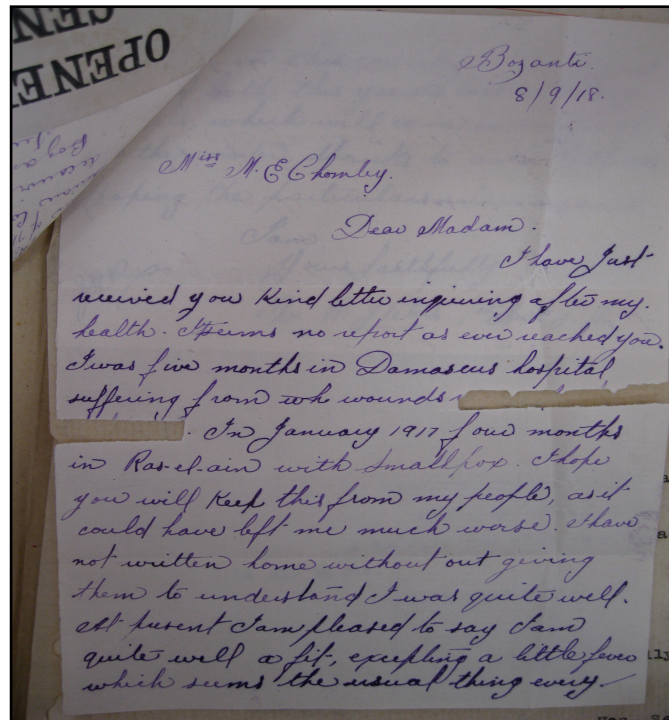 OPENE
CEN
Bozanti.
8/9/18.
Miss M. E Chomley.
Dear Madam.
I have Just
received you Kind letter inquiring after my.
health. It seems no report as ever reached you.
I was five months in Damascus hospital
suffering from the wounds
. In January 1917 four months
in Ras-el-ain with Smallpox. I hope
you will Keep this from my people, as it
could have left me much worse. I have
not written home without out giving
them to understand I was quite well.
At present I am pleased to say I am
quite well a fit, excepting a little fever
which seems the usual thing every.